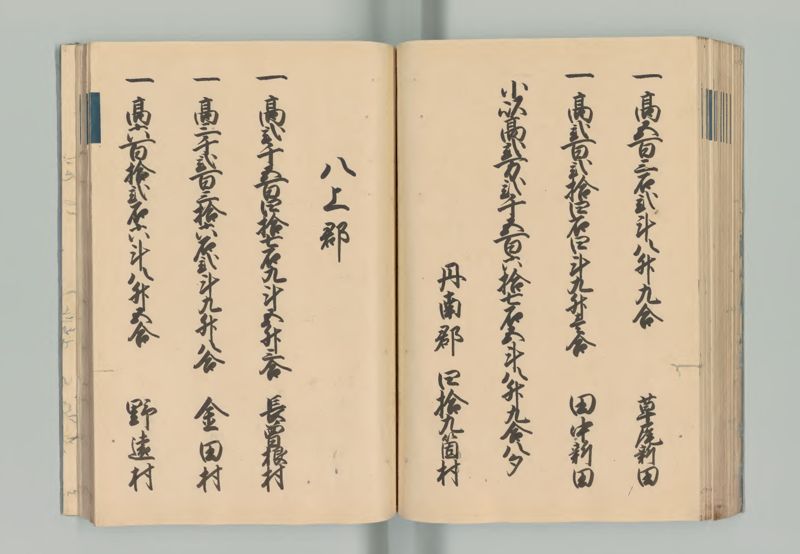 一 高五百三石弐斗八升九合 草尾新田
一 高弐百弐拾四石四斗九升壱合 田中新田
小以高弐万弐千五百六拾七石五斗八升九合八夕
丹南郡 四拾九箇村
八上郡
一 高弐千五百四拾七石九斗五升三合 長曽根村
一 高二千弐百三拾六石弐斗九升八合 金田村
一 高六百拾弐石六斗八升五合 野遠村